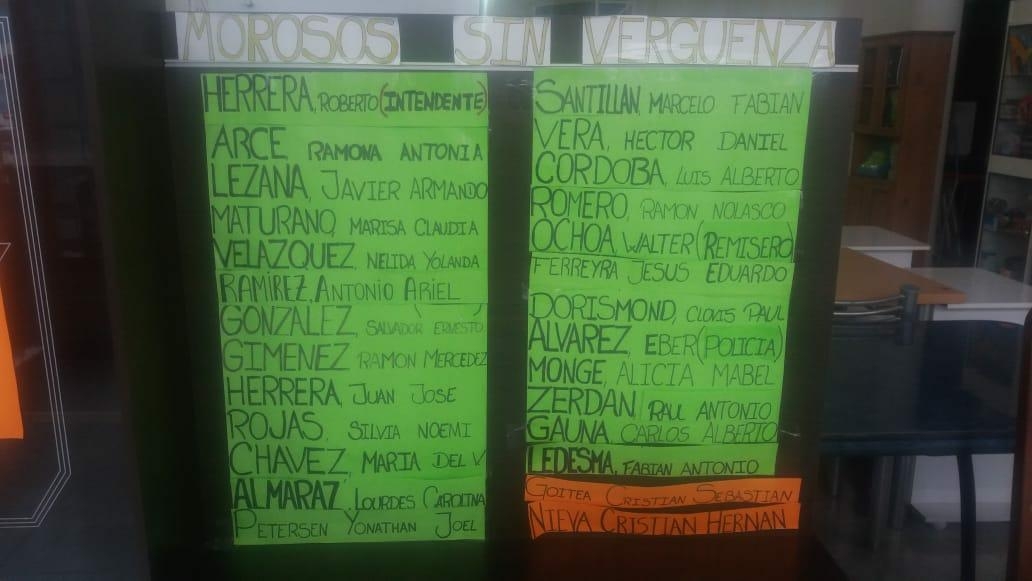 MOROSOS SIN VERGUENZA
HERRERA, ROBERTO (INTENDENTE)
ARCE, RAMONA ANTONIA
LEZANA, JAVIER ARMANDO
MATURANO, MARISA CLAUDIA
VELAZQUEZ, NELIDA YOLANDA
RAMÍREZ, ANTONIO ARIEL
GONZALEZ, SALVADOR ERNESTO
GIMENEZ RAMON MERCEDEZ
HERRERA, JUAN JOSE
ROJAS, SILVIA NOEMI
CHAVEZ, MARIA DEL V.
ALMARAZ, LOURDES CAROLINA
PETERSEN YONATHAN JOEL
SANTILLAN, MARCELO FABIAN
VERA, HECTOR DANIEL
CORDOBA, LUIS ALBERTO
ROMERO, RAMON NOLASCO
OCHOA, WALTER (REMISERO)
FERREYRA JESUS EDUARDO
DORISMOND, CLOVIS PAUL
ALVAREZ, EBER (POLICIA)
MONGE, ALICIA MABEL
ZERDAN, RAUL ANTONIO
GAUNA, CARLOS ALBERTO
LEDESMA, FABIAN ANTONIO
GOITEA CRISTIAN SEBASTIAN
NIEVA CRISTIAN HERNAN